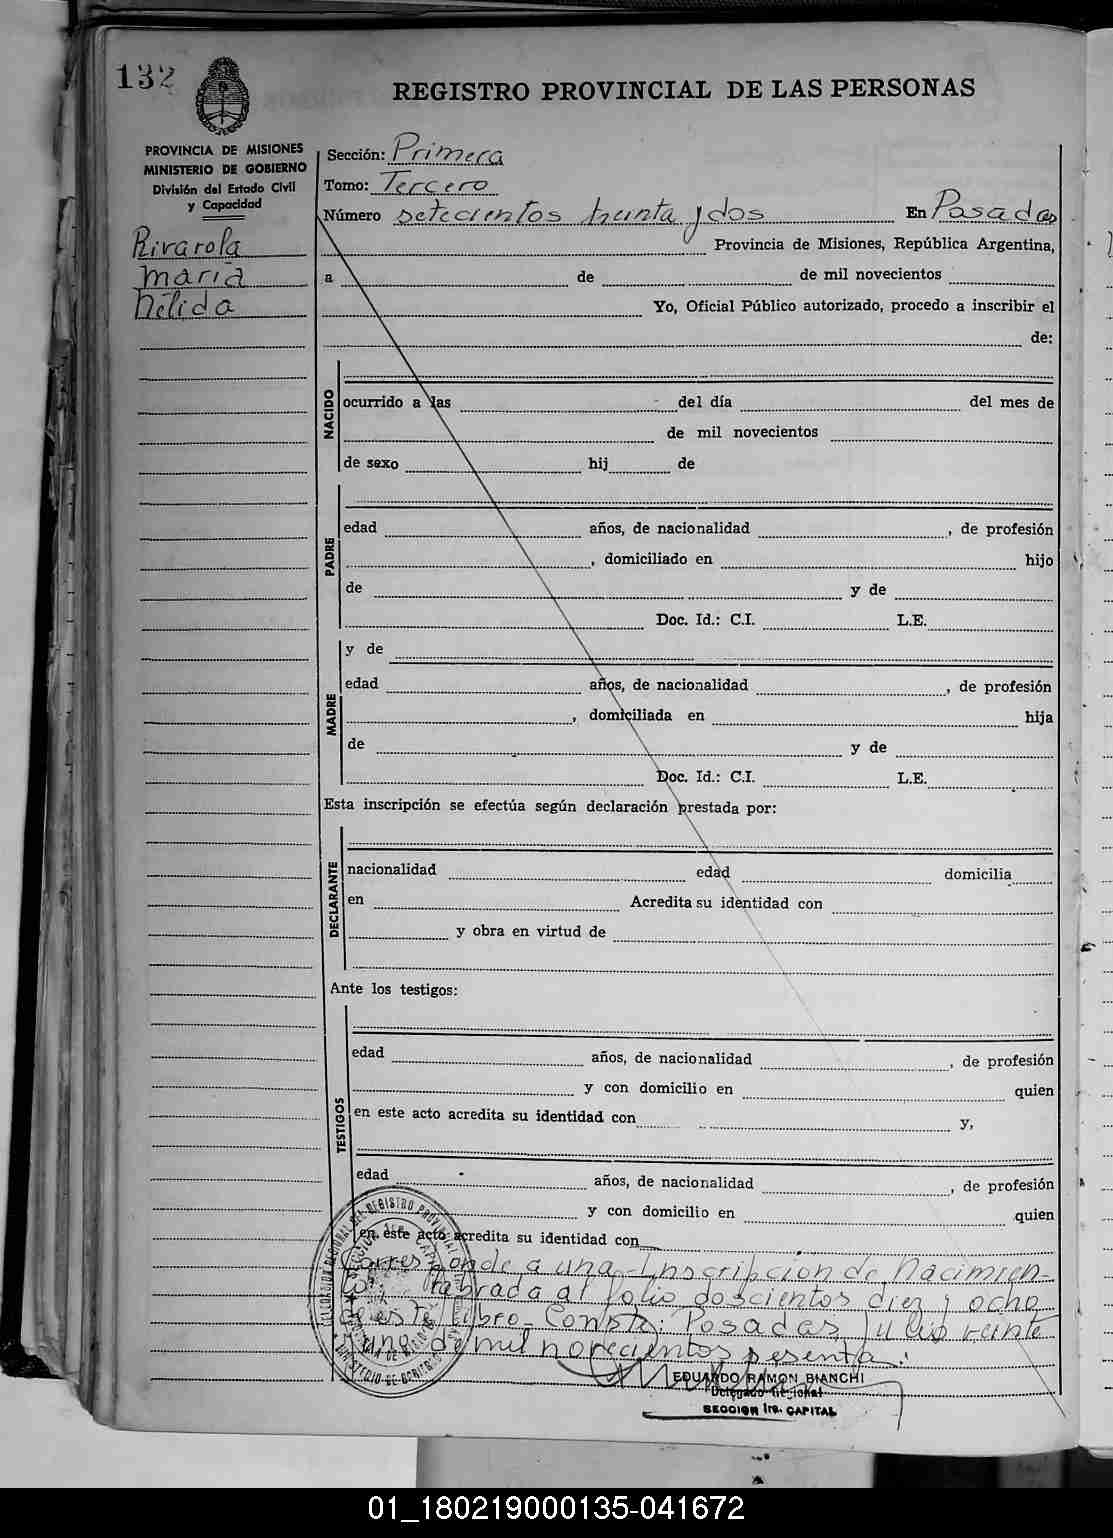 132
REGISTRO PROVINCIAL DE LAS PERSONAS
PROVINCIA DE MISIONES
MINISTERIO DE GOBIERNO
División del Estado Civil
y Capacidad
Sección: Primera
Tomo: Tercero
Número setecientos treinta y dos En Posadas
Rivarola
Maria
Nélida
Provincia de Misiones, República Argentina,
a de de mil novecientos
Yo, Oficial Público autorizado, procedo a inscribir el
de:
NACIDO
ocurrido a las del día del mes de
de mil novecientos
de sexo hij de
PADRE
edad años, de nacionalidad , de profesión
, domiciliado en hijo
de y de
Doc. Id.: C.I. L.E.
MADRE
y de
edad años, de nacionalidad , de profesión
, domiciliada en hija
de y de
Doc. Id.: C.I. L.E.
Esta inscripción se efectúa según declaración prestada por:
DECLARANTE
nacionalidad edad domicilia
en Acredita su identidad con
y obra en virtud de
Ante los testigos:
TESTIGOS
edad años, de nacionalidad , de profesión
y con domicilio en quien
en este acto acredita su identidad con y,
edad años, de nacionalidad , de profesión
y con domicilio en quien
en este acto acredita su identidad con
Corresponde a una Inscripcion de Nacimien-
to labrada al folio doscientos diez y ocho
de este Libro - Conste: Posadas, Julio veinte
y uno de mil novecientos sesenta.
EDUARDO RAMON BIANCHI
Delegado Regional
SECCION 1ra. CAPITAL
01_180219000135-041672